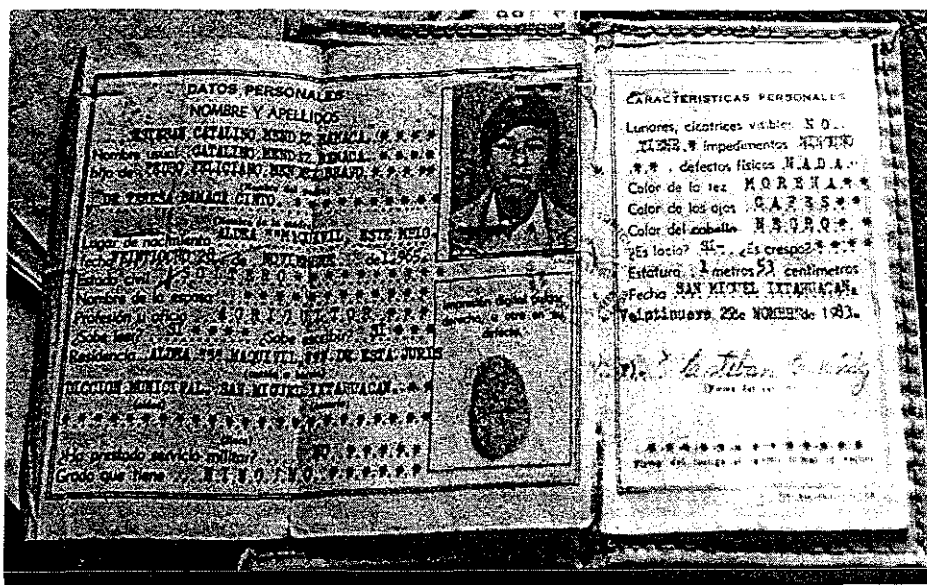 DATOS PERSONALES
NOMBRE Y APELLIDOS
ESTEBAN CATALINO MENDEZ BAMACA. * * * *
Nombre usual: CATALINO MENDEZ BAMACA. * * * *
Hijo de: PEDRO FELICIANO MENDEZ * * * * *
DE TERESA BAMACA CINTO * * * *
Lugar de nacimiento ALDEA "MAQUIVIL, ESTE MPIO.
Fecha VEINTIOCHO 28 de NOVIEMBRE de 1965.
Estado civil SOLTERO * * * *
Nombre de la esposa * * * *
Profesión u oficio AGRICULTOR * * * *
¿Sabe leer? SI * * * * ¿Sabe escribir? SI * * * *
Residencia ALDEA MAQUIVIL DE ESTA JURIS
DICCION MUNICIPAL. SAN MIGUEL IXTAHUACAN. * *
¿Ha prestado servicio militar? NO. * * * * *
Grado que tiene N.I.N.G.U.N.O. * * * * *
Impresión digital pulgar
derecho, u otro en su
defecto.
CARACTERISTICAS PERSONALES
Lunares, cicatrices visibles N O.
TIENE. * impedimentos NINGUNO
* * . defectos físicos N.A.D.A.
Color de la tez M O R E N A * *
Color de los ojos C A F E S * *
Color del cabello N E G R O. * *
¿Es lacio? SI- ¿Es crespo? * * * *
Estatura 1 metros 53 centimetros
Fecha SAN MIGUEL IXTAHUACAN.
Veintinueve 29 de NOMBRE de 1983.
Esteban